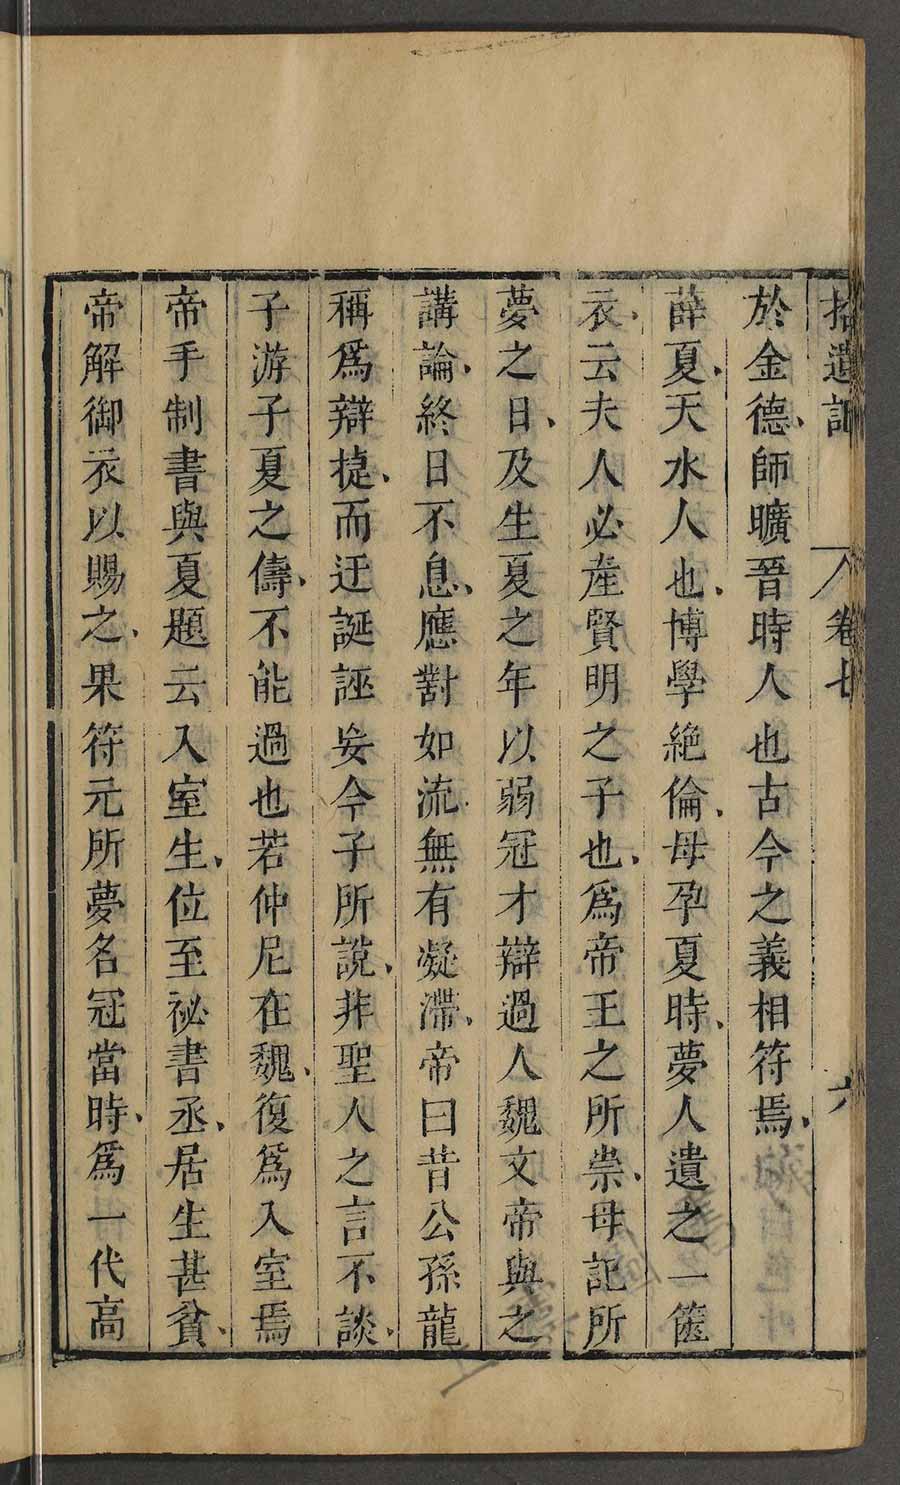 拾遺記 卷七 六
於金德師曠晉時人也古今之義相符焉
薛夏天水人也博學絶倫母孕夏時夢人遺之一篋
衣云夫人必產賢明之子也爲帝王之所崇母記所
夢之日及生夏之年以弱冠才辯過人魏文帝與之
講論終日不息應對如流無有凝滯帝曰昔公孫龍
稱爲辯捷而迂誕誣妄今子所說非聖人之言不談
子游子夏之儔不能過也若仲尼在魏復爲入室焉
帝手制書與夏題云入室生位至祕書丞居生甚貧
帝解御衣以賜之果符元所夢名冠當時爲一代高